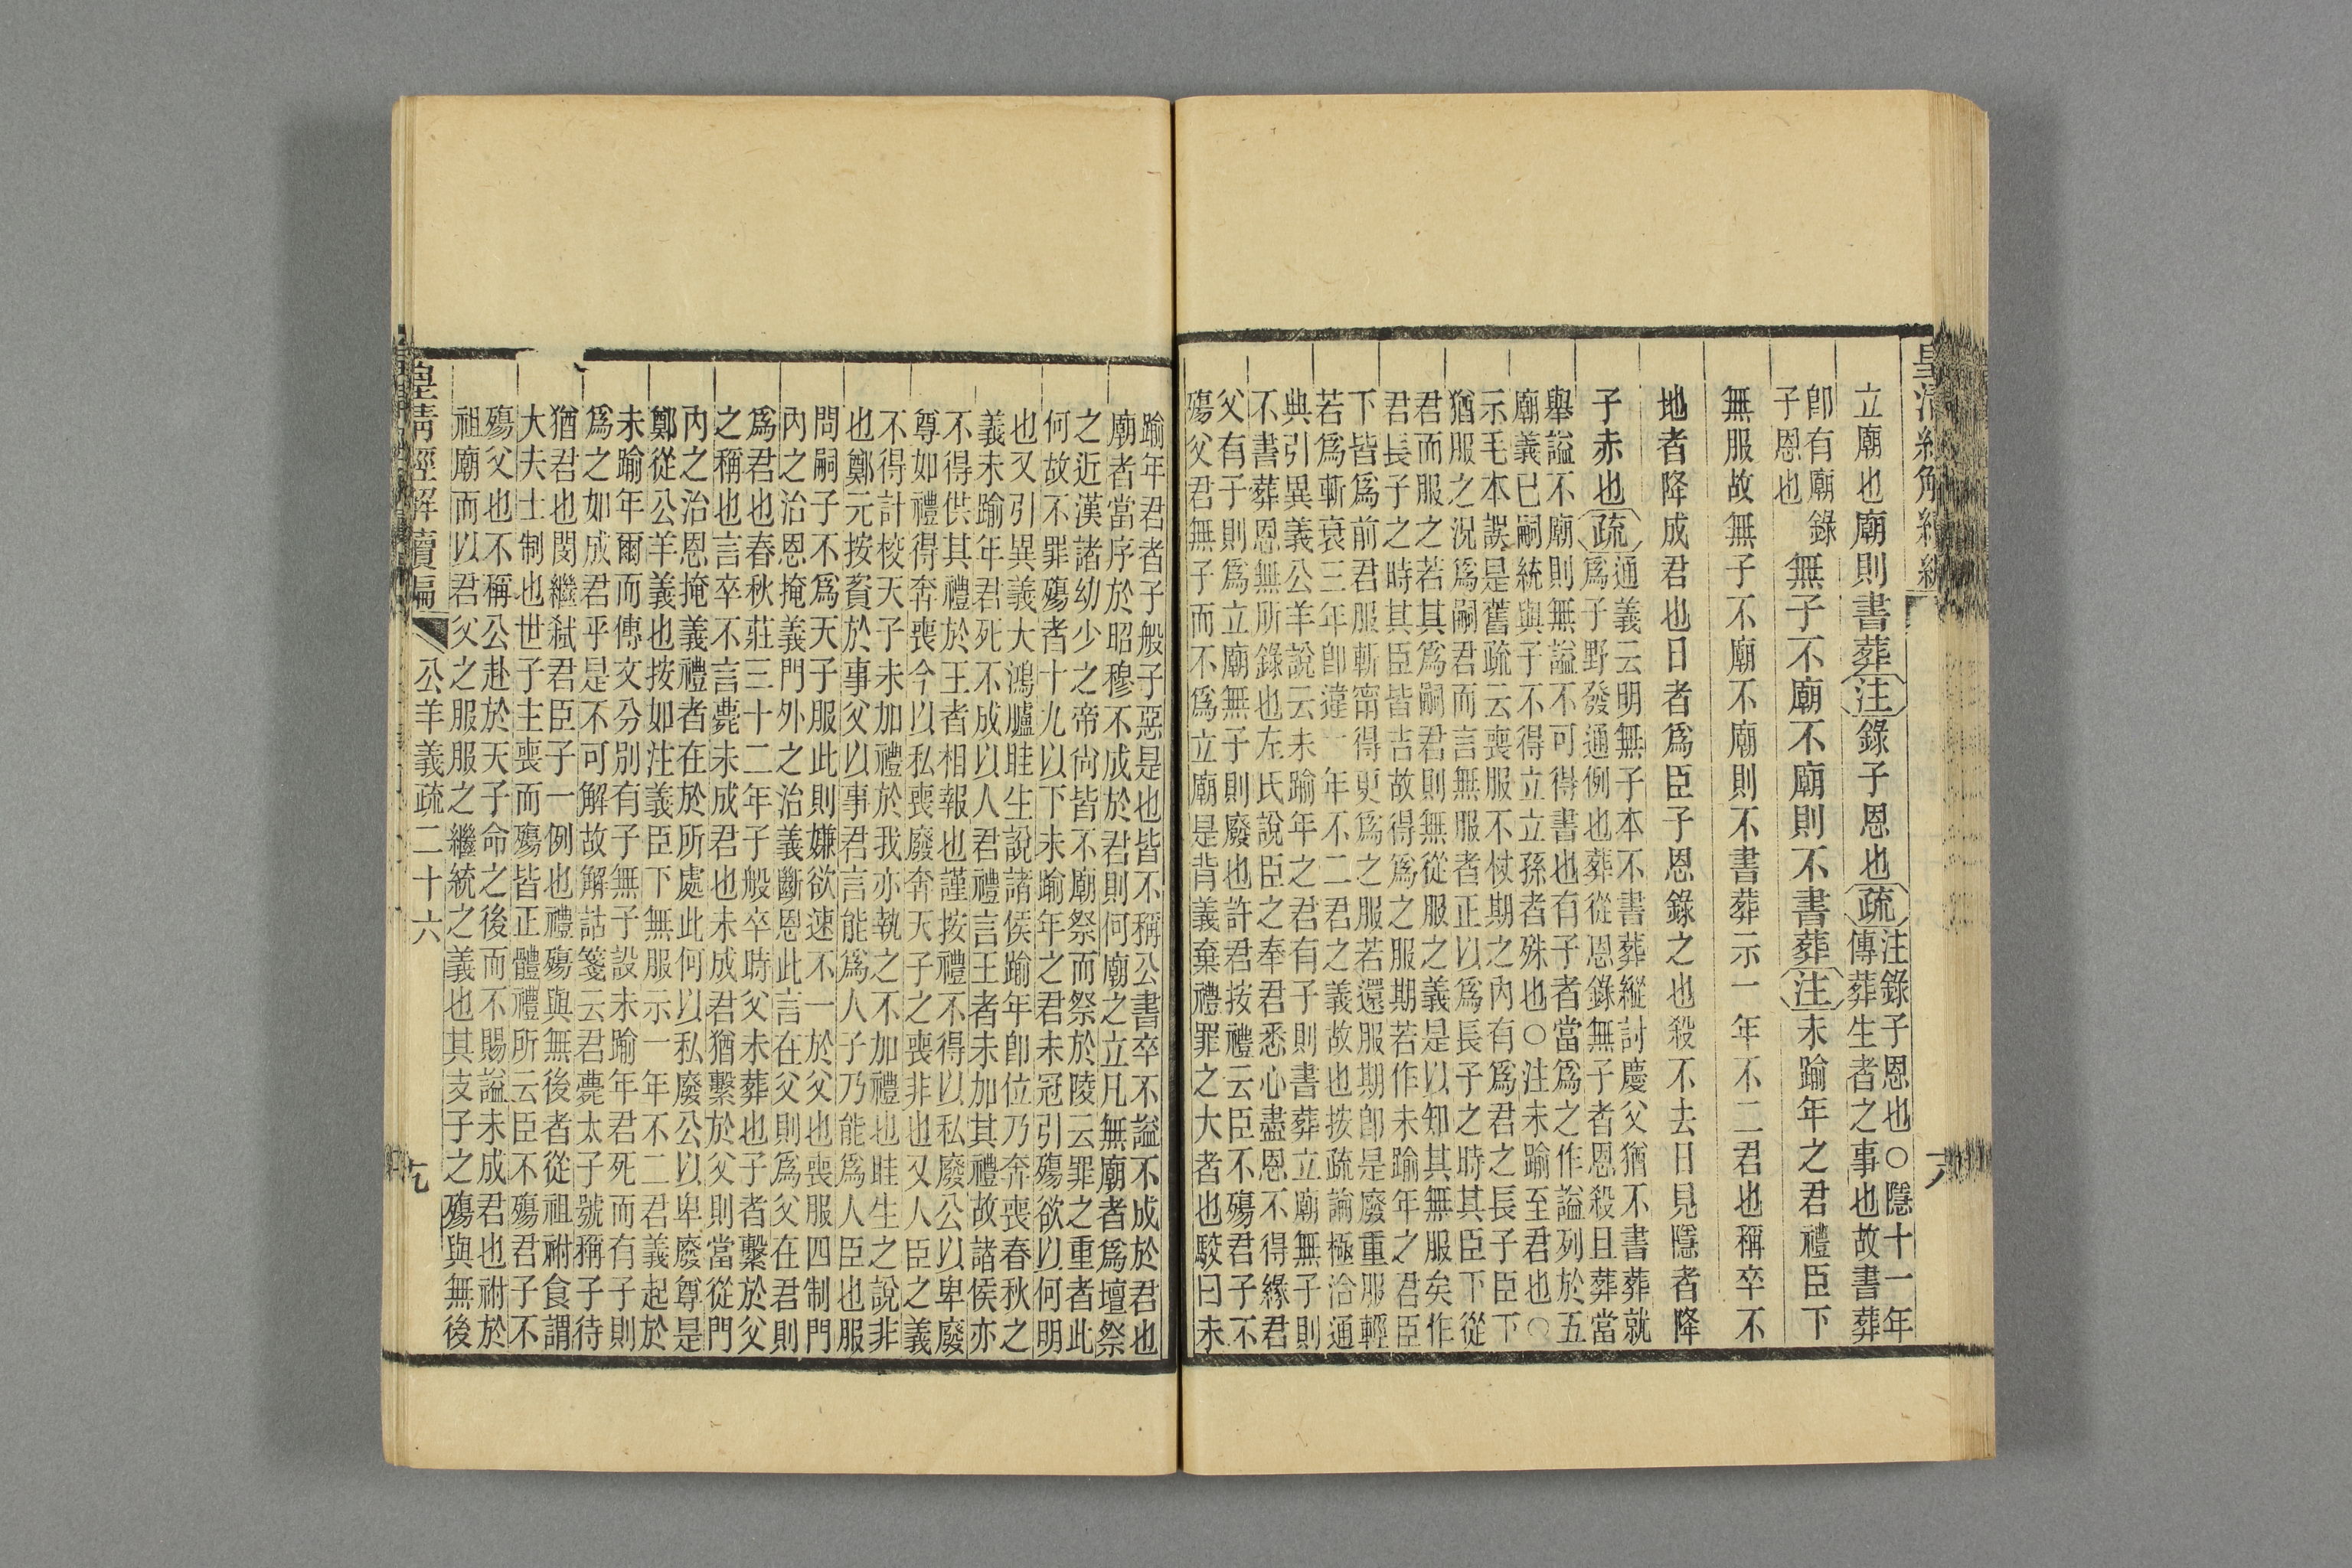 立廟也廟則書葬注錄子恩也疏注錄子恩也○隱十一年
傳葬生者之事也故書葬
卽有廟錄
子恩也
無子不廟不廟則不書葬注未踰年之君禮臣下
無服故無子不廟不廟則不書葬示一年不二君也稱卒不
地者降成君也日者爲臣子恩錄之也殺不去日見隱者降
子赤也疏通義云明無子本不書葬縱討慶父猶不書葬就
爲子野發通例也葬從恩錄無子者恩殺且葬當
舉謚不廟則無謚不可得書也有子者當爲之作謚列於五
廟義已嗣統與子不得立立孫者殊也○注未踰至君也○
示毛本誤是舊疏云喪服不杖期之內有爲君之長子臣下
猶服之況爲嗣君而言無服者正以爲長子之時其臣下從
君而服之若其爲嗣君則無從服之義是以知其無服矣作
君長子之時其臣皆吉故得爲之服期若作未踰年之君臣
下皆爲前君服斬甯得更爲之服若還服期卽是廢重服輕
若爲斬衰三年卽違一年不二君之義故也按疏論極洽通
典引異義公羊說云未踰年之君有子則書葬立廟無子則
不書葬恩無所錄也左氏說臣之奉君悉心盡恩不得緣君
父有子則爲立廟無子則廢也許君按禮云臣不殤君子不
殤父君無子而不爲立廟是背義棄禮罪之大者也駮曰未
踰年君者子般子惡是也皆不稱公書卒不謚不成於君也
廟者當序於昭穆不成於君則何廟之立凡無廟者爲壇祭
之近漢諸幼少之帝尚皆不廟祭而祭於陵云罪之重者此
何故不罪殤者十九以下未踰年之君未冠引殤欲以何明
也又引異義大鴻臚眭生說諸侯踰年卽位乃奔喪春秋之
義未踰年君死不成以人君禮言王者未加其禮故諸侯亦
不得供其禮於王者相報也謹按禮不得以私廢公以卑廢
尊如禮得奔喪今以私喪廢奔天子之喪非也又人臣之義
不得計校天子未加禮於我亦執之不加禮也眭生之說非
也鄭元按資於事父以事君言能爲人子乃能爲人臣也服
問嗣子不爲天子服此則嫌欲速不一於父也喪服四制門
內之治恩掩義門外之治義斷恩此言在父則爲父在君則
爲君也春秋莊三十二年子般卒時父未葬也子者繫於父
之稱也言卒不言薨未成君也未成君猶繫於父則當從門
內之治恩掩義禮者在於所處此何以私廢公以卑廢尊是
鄭從公羊義也按如注義臣下無服示一年不二君義起於
未踰年爾而傳文分別有子無子設未踰年君死而有子則
爲之如成君乎是不可解故解詁箋云君薨太子號稱子待
猶君也閔繼弒君臣子一例也禮殤與無後者從祖祔食謂
大夫士制也世子主喪而殤皆正體禮所云臣不殤君子不
殤父也不稱公赴於天子命之後而不賜謚未成君也祔於
祖廟而以君父之服服之繼統之義也其支子之殤與無後
皇清經解續編
公羊義疏二十六